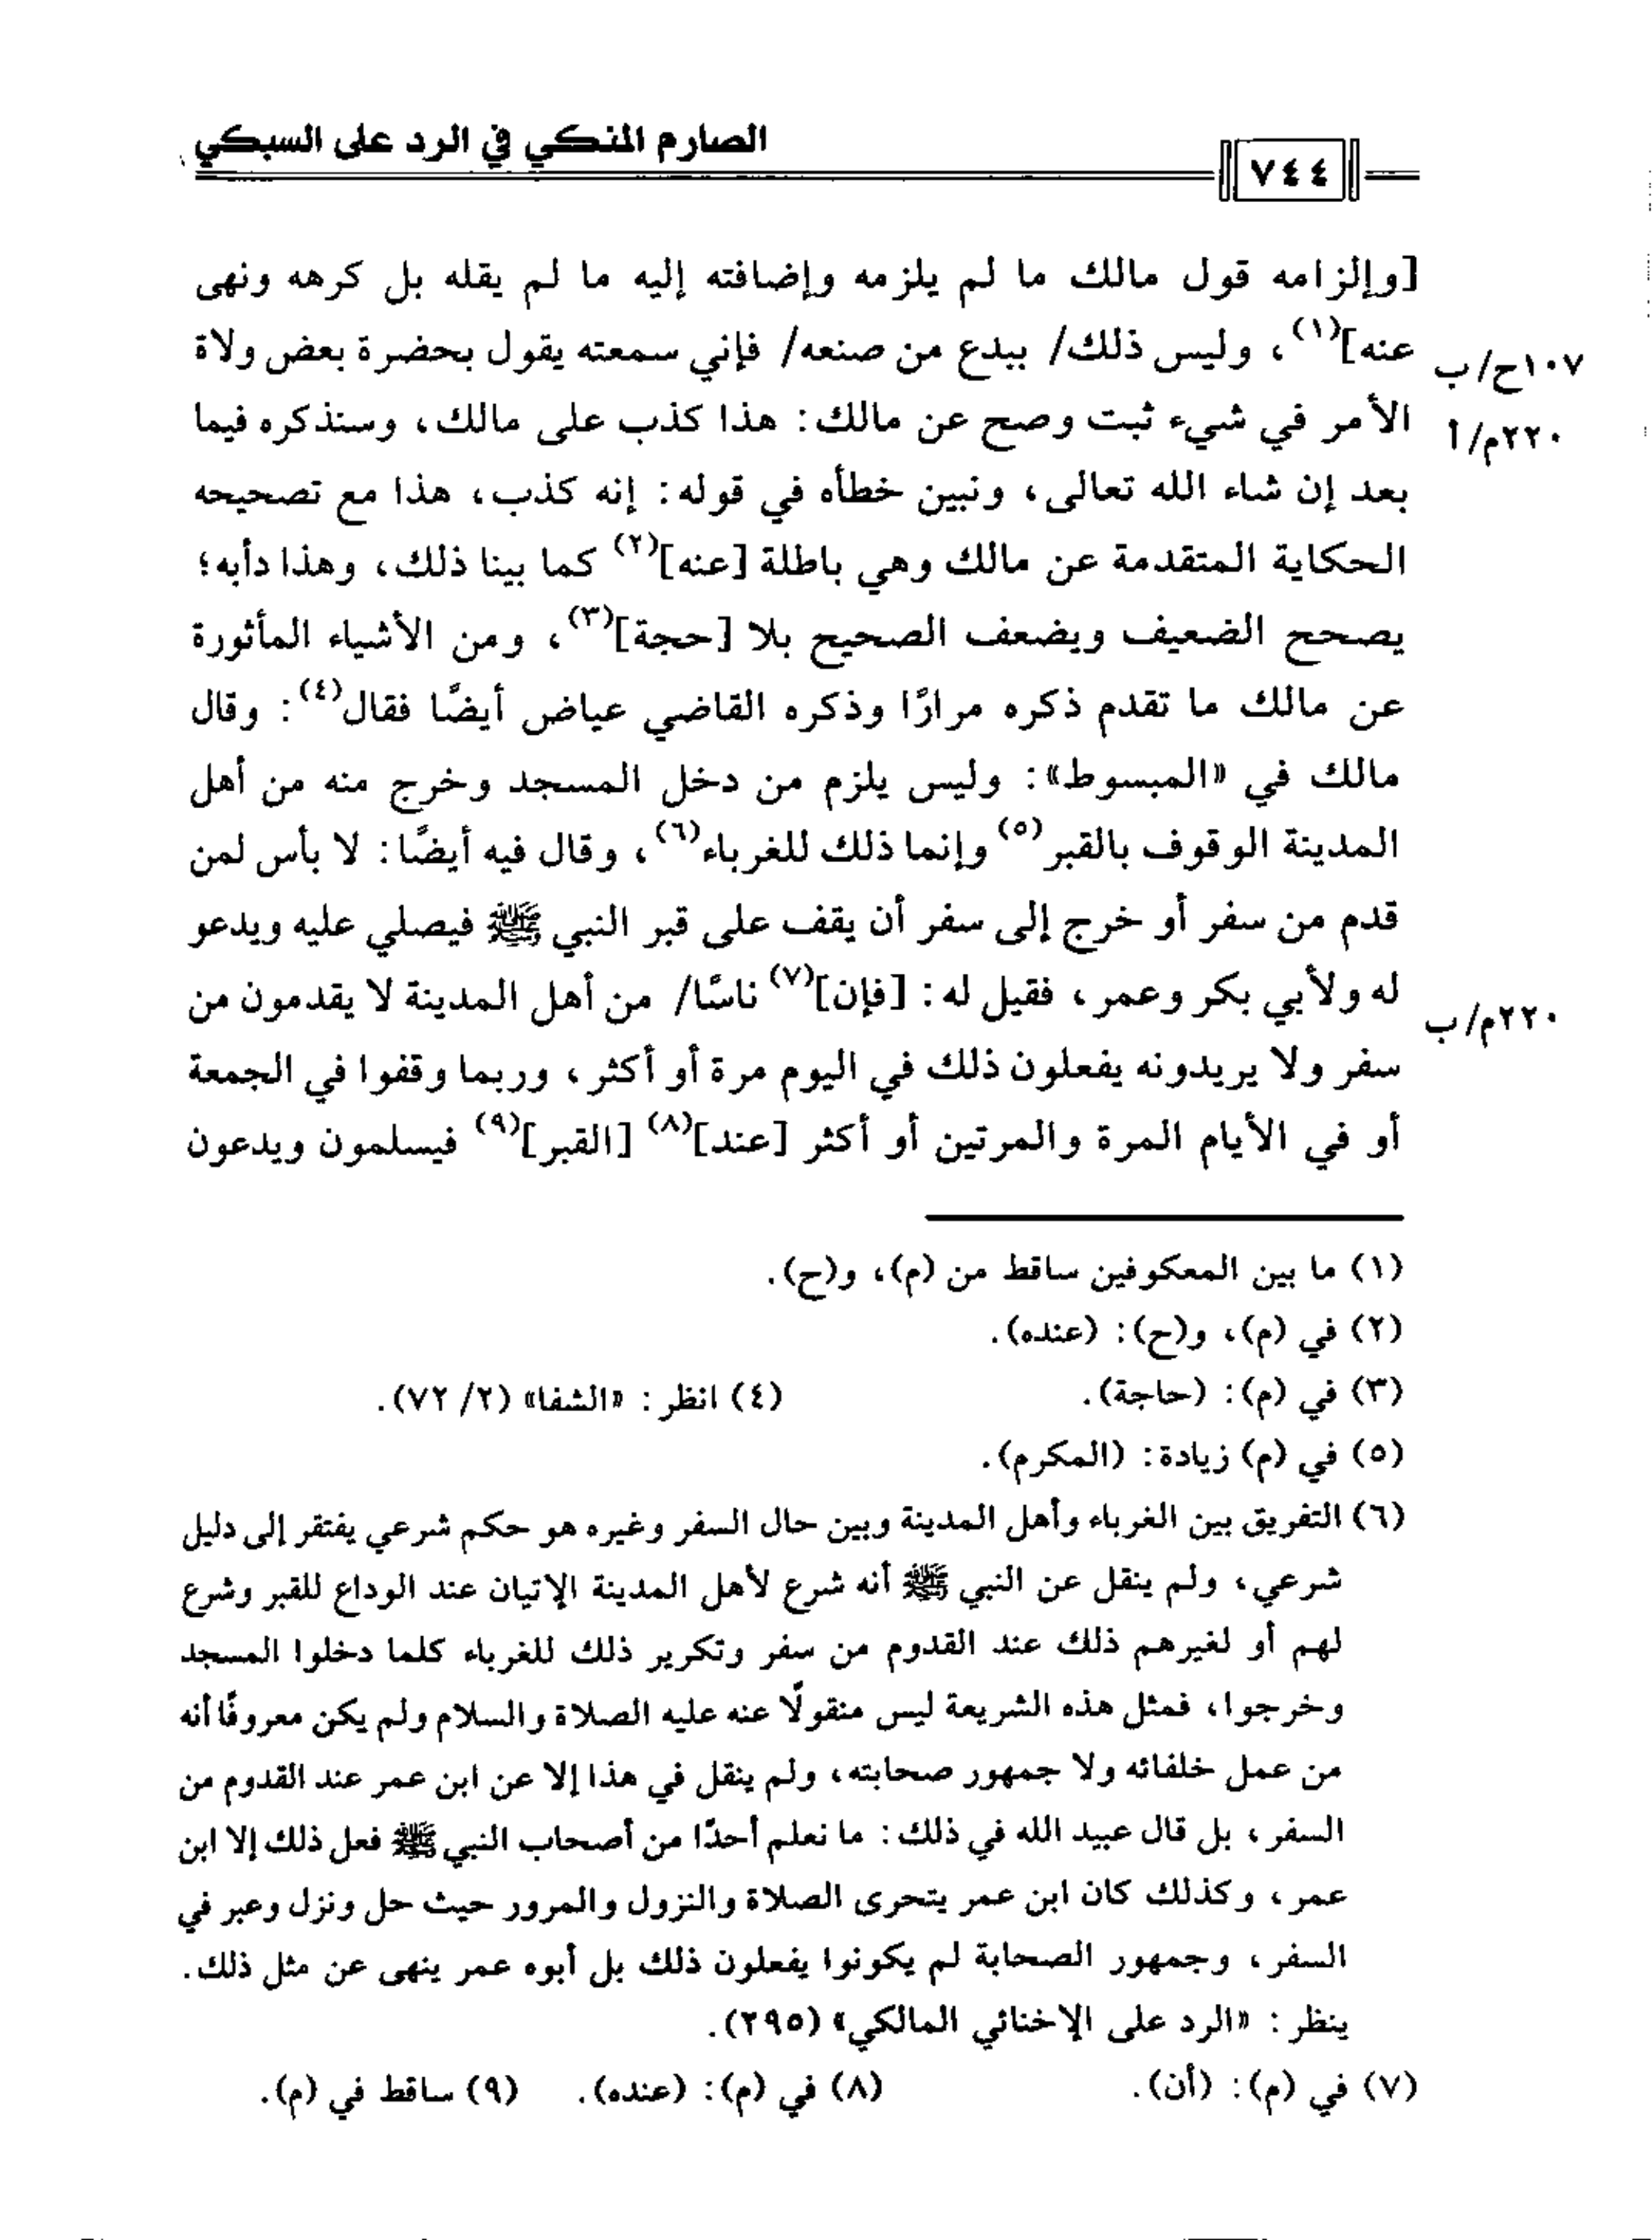 الصارم المنكي في الرد على السبكي
٧٤٤
[وإلزامه قول مالك ما لم يلزمه وإضافته إليه ما لم يقله بل كرهه ونهى
عنه](١)، وليس ذلك/ ببدع من صنعه/ فإني سمعته يقول بحضرة بعض ولاة
١٠٧ح/ب
الأمر في شيء ثبت وصح عن مالك: هذا كذب على مالك، وسنذكره فيما
٢٢٠م/أ
بعد إن شاء الله تعالى، ونبين خطأه في قوله: إنه كذب، هذا مع تصحيحه
الحكاية المتقدمة عن مالك وهي باطلة [عنه](٢) كما بينا ذلك، وهذا دأبه؛
يصحح الضعيف ويضعف الصحيح بلا [حجة](٣)، ومن الأشياء المأثورة
عن مالك ما تقدم ذكره مرارًا وذكره القاضي عياض أيضًا فقال(٤): وقال
مالك في «المبسوط»: وليس يلزم من دخل المسجد وخرج منه من أهل
المدينة الوقوف بالقبر(٥) وإنما ذلك للغرباء(٦)، وقال فيه أيضًا: لا بأس لمن
قدم من سفر أو خرج إلى سفر أن يقف على قبر النبي ﷺ فيصلي عليه ويدعو
له ولأبي بكر وعمر، فقيل له: [فإن](٧) ناسًا/ من أهل المدينة لا يقدمون من
٢٢٠م/ب
سفر ولا يريدونه يفعلون ذلك في اليوم مرة أو أكثر، وربما وقفوا في الجمعة
أو في الأيام المرة والمرتين أو أكثر [عند](٨) [القبر](٩) فيسلمون ويدعون
(١) ما بين المعكوفين ساقط من (م)، و(ح).
(٢) في (م)، و(ح): (عنده).
(٣) في (م): (حاجة). (٤) انظر: «الشفا» (٢/ ٧٢).
(٥) في (م) زيادة: (المكرم).
(٦) التفريق بين الغرباء وأهل المدينة وبين حال السفر وغيره هو حكم شرعي يفتقر إلى دليل
شرعي، ولم ينقل عن النبي ﷺ أنه شرع لأهل المدينة الإتيان عند الوداع للقبر وشرع
لهم أو لغيرهم ذلك عند القدوم من سفر وتكرير ذلك للغرباء كلما دخلوا المسجد
وخرجوا، فمثل هذه الشريعة ليس منقولًا عنه عليه الصلاة والسلام ولم يكن معروفًا أنه
من عمل خلفائه ولا جمهور صحابته، ولم ينقل في هذا إلا عن ابن عمر عند القدوم من
السفر، بل قال عبيد الله في ذلك: ما نعلم أحدًا من أصحاب النبي ﷺ فعل ذلك إلا ابن
عمر، وكذلك كان ابن عمر يتحرى الصلاة والنزول والمرور حيث حل ونزل وعبر في
السفر، وجمهور الصحابة لم يكونوا يفعلون ذلك بل أبوه عمر ينهى عن مثل ذلك.
ينظر: «الرد على الإخنائي المالكي» (٢٩٥).
(٧) في (م): (أن). (٨) في (م): (عنده). (٩) ساقط في (م).